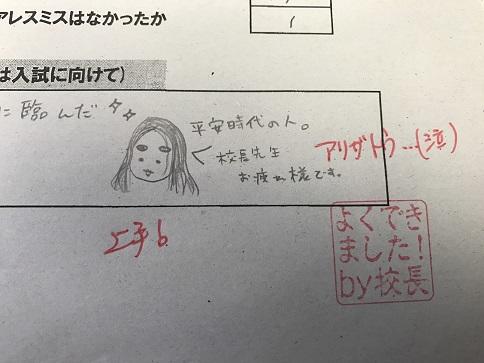 アレスミスはなかったか
1
は入試に向けて)
に臨んだ
平安時代の人。
校長先生
お疲れ様です。
アリガトウ…(泣)
上手b
よくでき
ました!
by校長